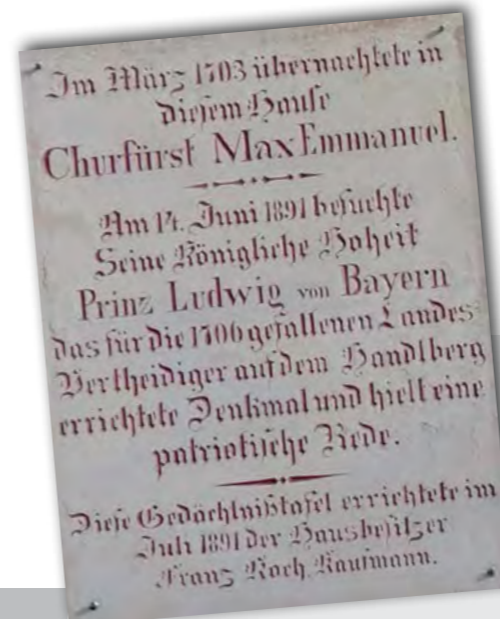 Im März 1703 übernachtete in
diesem Hause
Churfürst Max Emmanuel.
Am 14. Juni 1891 besuchte
Seine Königliche Hoheit
Prinz Ludwig von Bayern
das für die 1706 gefallenen Landes
Vertheidiger auf dem Handlberg
errichtete Denkmal und hielt eine
patriotische Rede.
Diese Gedächtnißtafel errichtete im
Juli 1891 der Hausbesitzer
Franz Koch, Kaufmann.